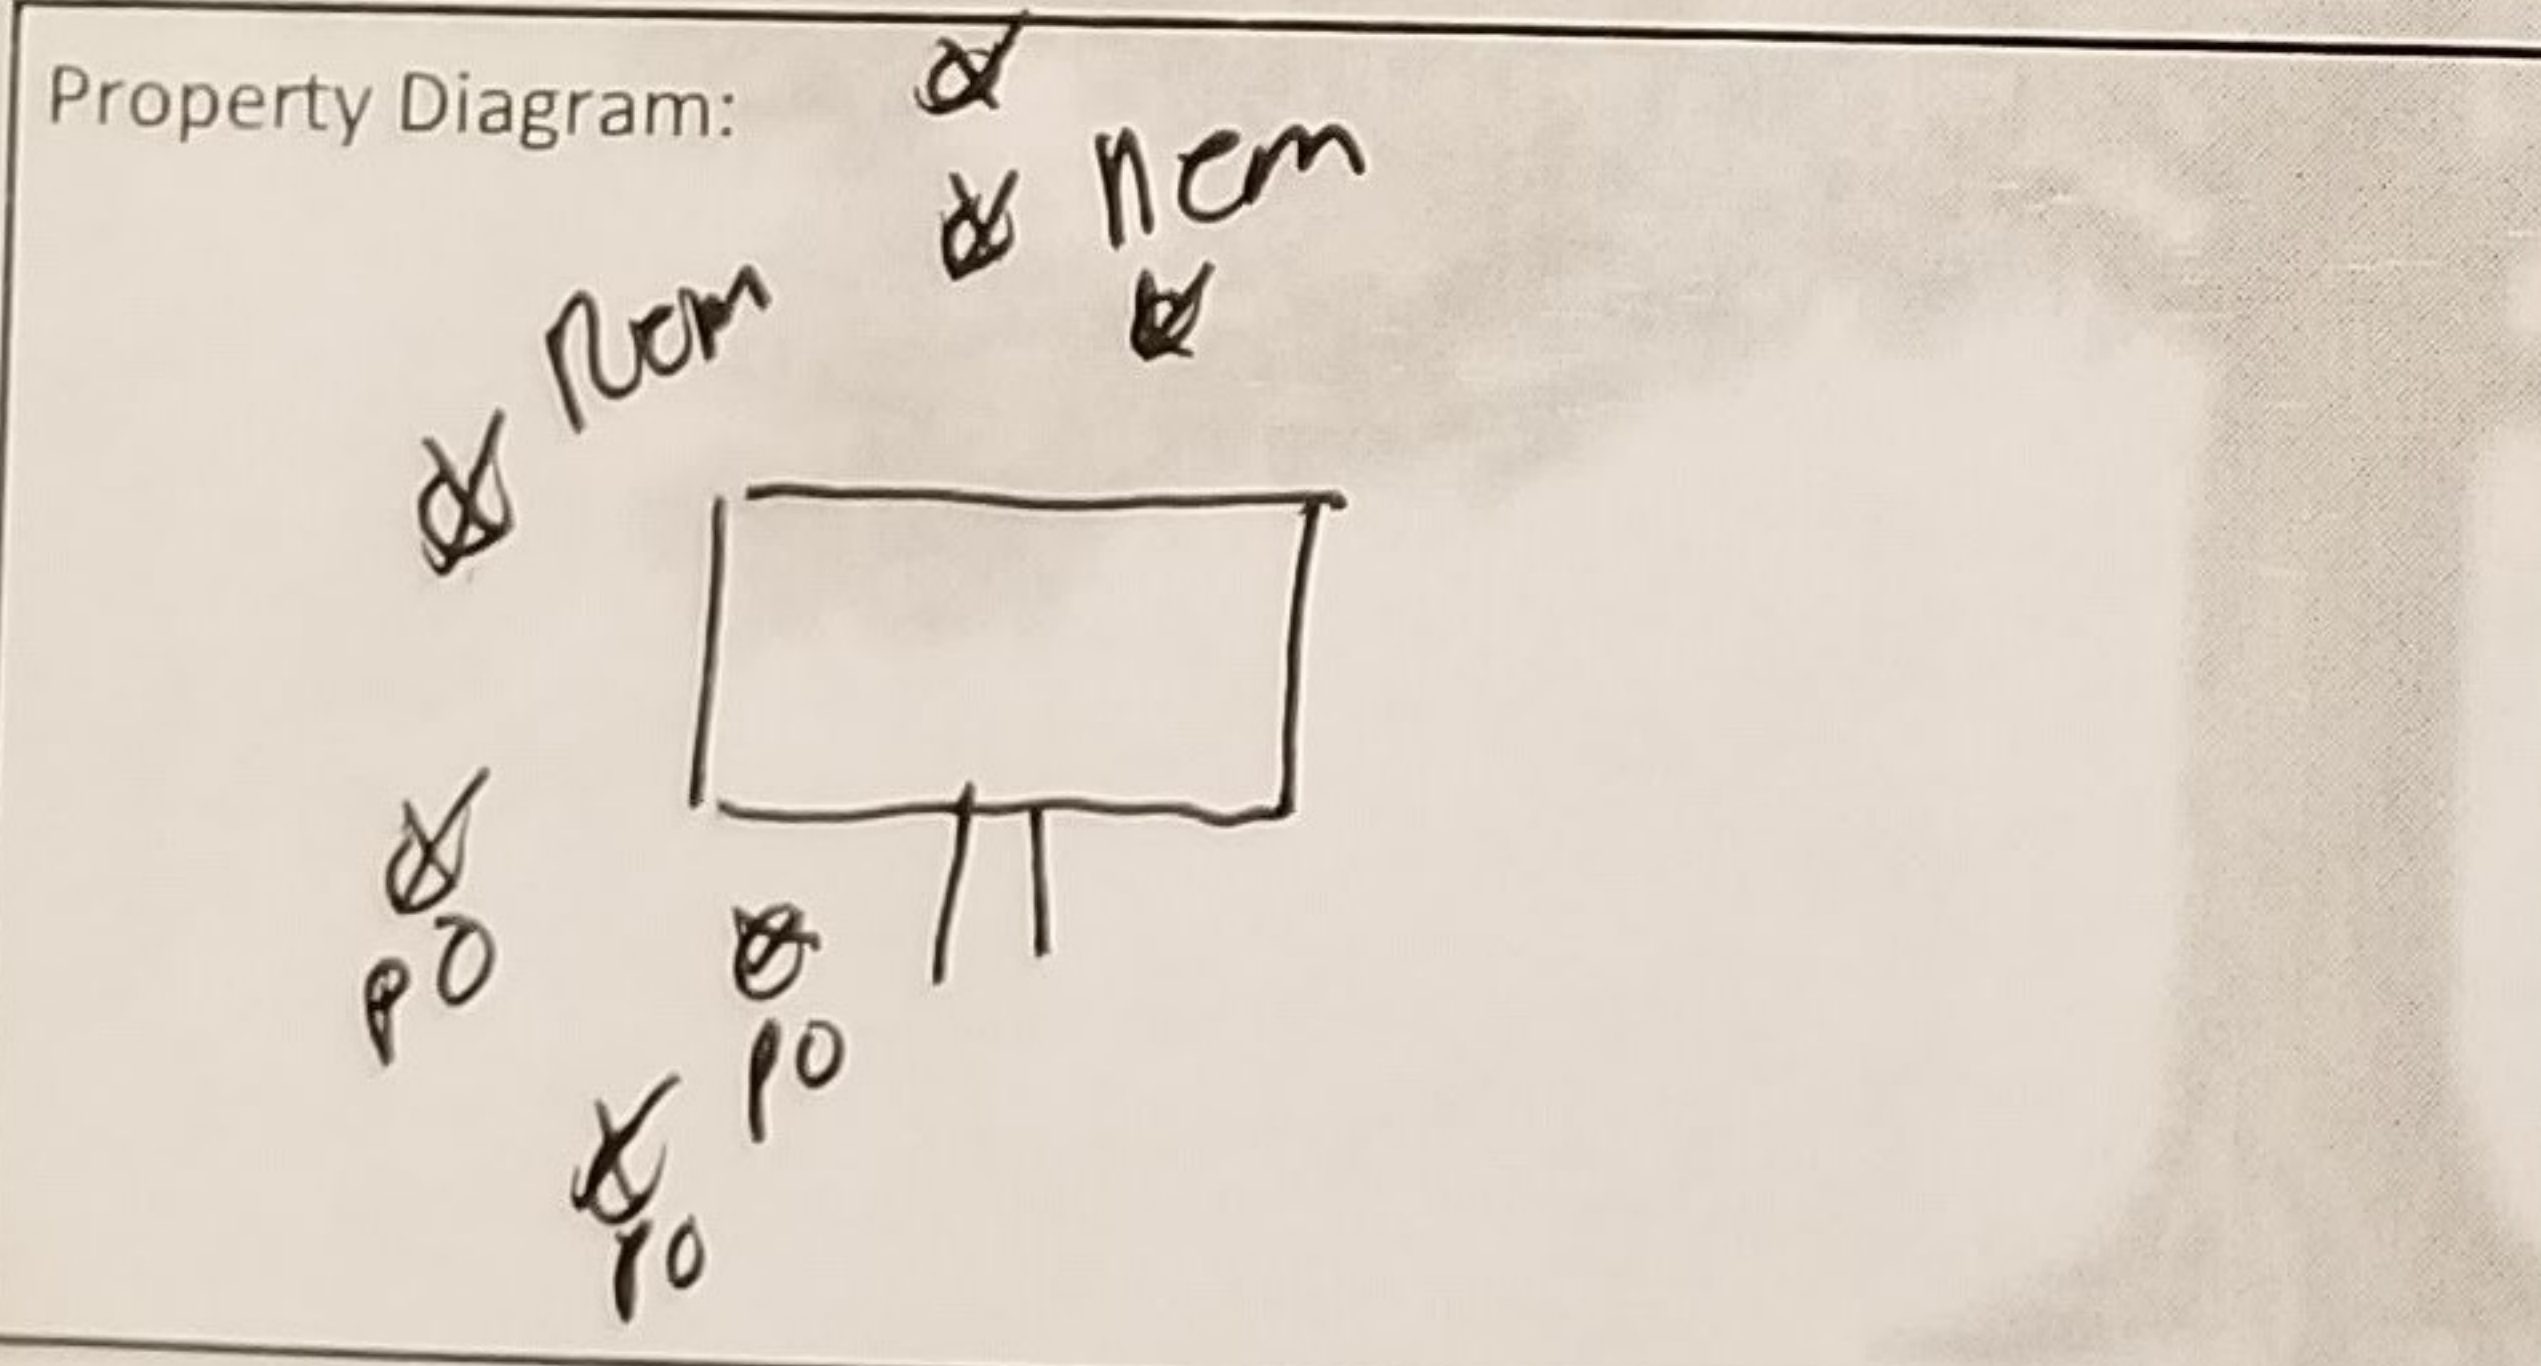 Property Diagram:
Rem
Rem
PO
PO
PO